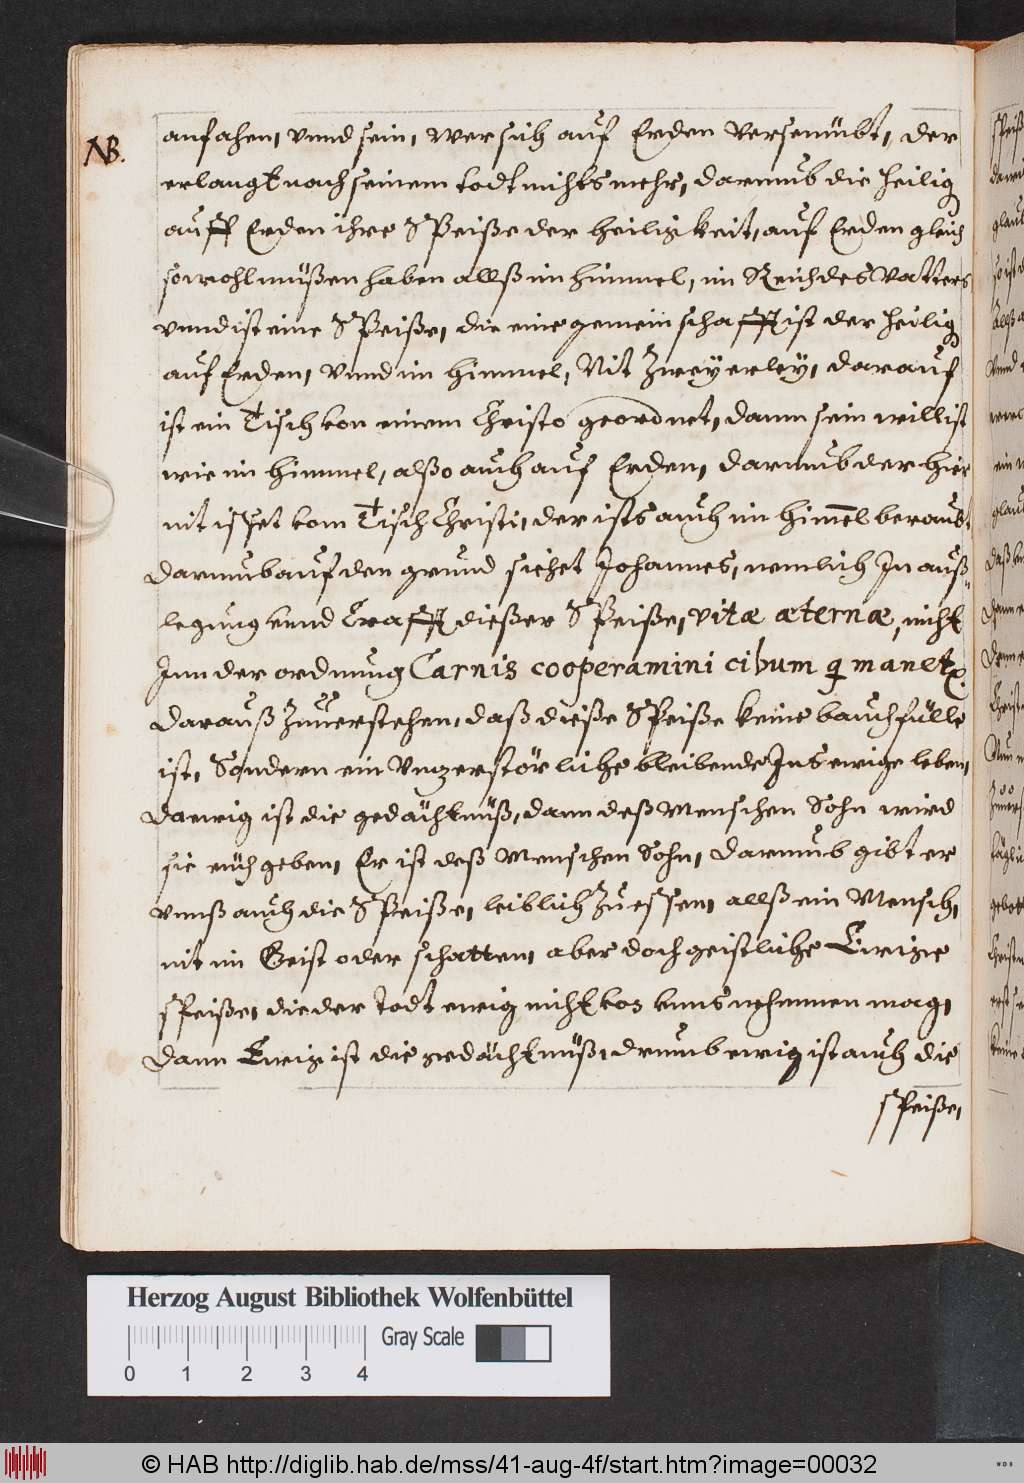 NB. anfahen, vnnd sein, wer sich auf Erden versenübt, der
erlangt nach seinem todt nichts mehr, darumb die heilig
auff Erden ihre Speiße der heiligkeit, auf Erden gleich
sowohl müßen haben allß im himmel, im Reich des Vatters
vnnd ist eine Speiße, die eine gemeinschafft ist der heilig
auf Erden, Vnnd im himmel, Nit Zweyerley, darauf
ist ein Tisch von einem Christo geordnet, dann sein will ist
wie im himmel, also auch auf Erden, darumb der hier
nit isset vom Tisch Christi, der ists auch im himel beraubt
darumb auf den grund siehet Johannes, nemlich In auß=
legung vnnd Crafft dießer Speiße, vitæ æternæ, nicht
Inn der ordnung Carnis cooperamini cibum q manet
darauß Zuuerstehen, daß dieße Speiße keine bauchfülle
ist, Sondern ein Vnzerstörliche bleibende Ins ewige leben,
da ewig ist die gedächtnüß, dann deß Menschen Sohn wird
sie euch geben, Er ist deß Menschen Sohn, darumb gibt er
vnnß auch die Speiße, leiblich Zu essen, allß ein Mensch,
nit im Geist oder schatten, aber doch geistliche Ewige
speiße, die der todt ewig nicht von vnns nehmen mag,
dann Ewig ist die gedächtnüß, drumb ewig ist auch die
speiße,
Herzog August Bibliothek Wolfenbüttel
Gray Scale
0 1 2 3 4
© HAB http://diglib.hab.de/mss/41-aug-4f/start.htm?image=00032